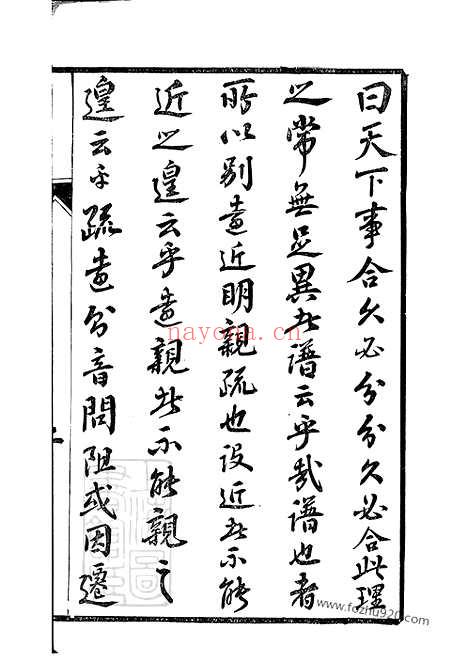 曰天下事合久必分分久必合此理
之常無足異者譜云乎哉譜也者
所以别遠近明親疏也设近者不能
近之遑云乎遠親者不能親之
遑云乎疏遠音問阻或因遷
nayona.cn
www.fozhu920.com